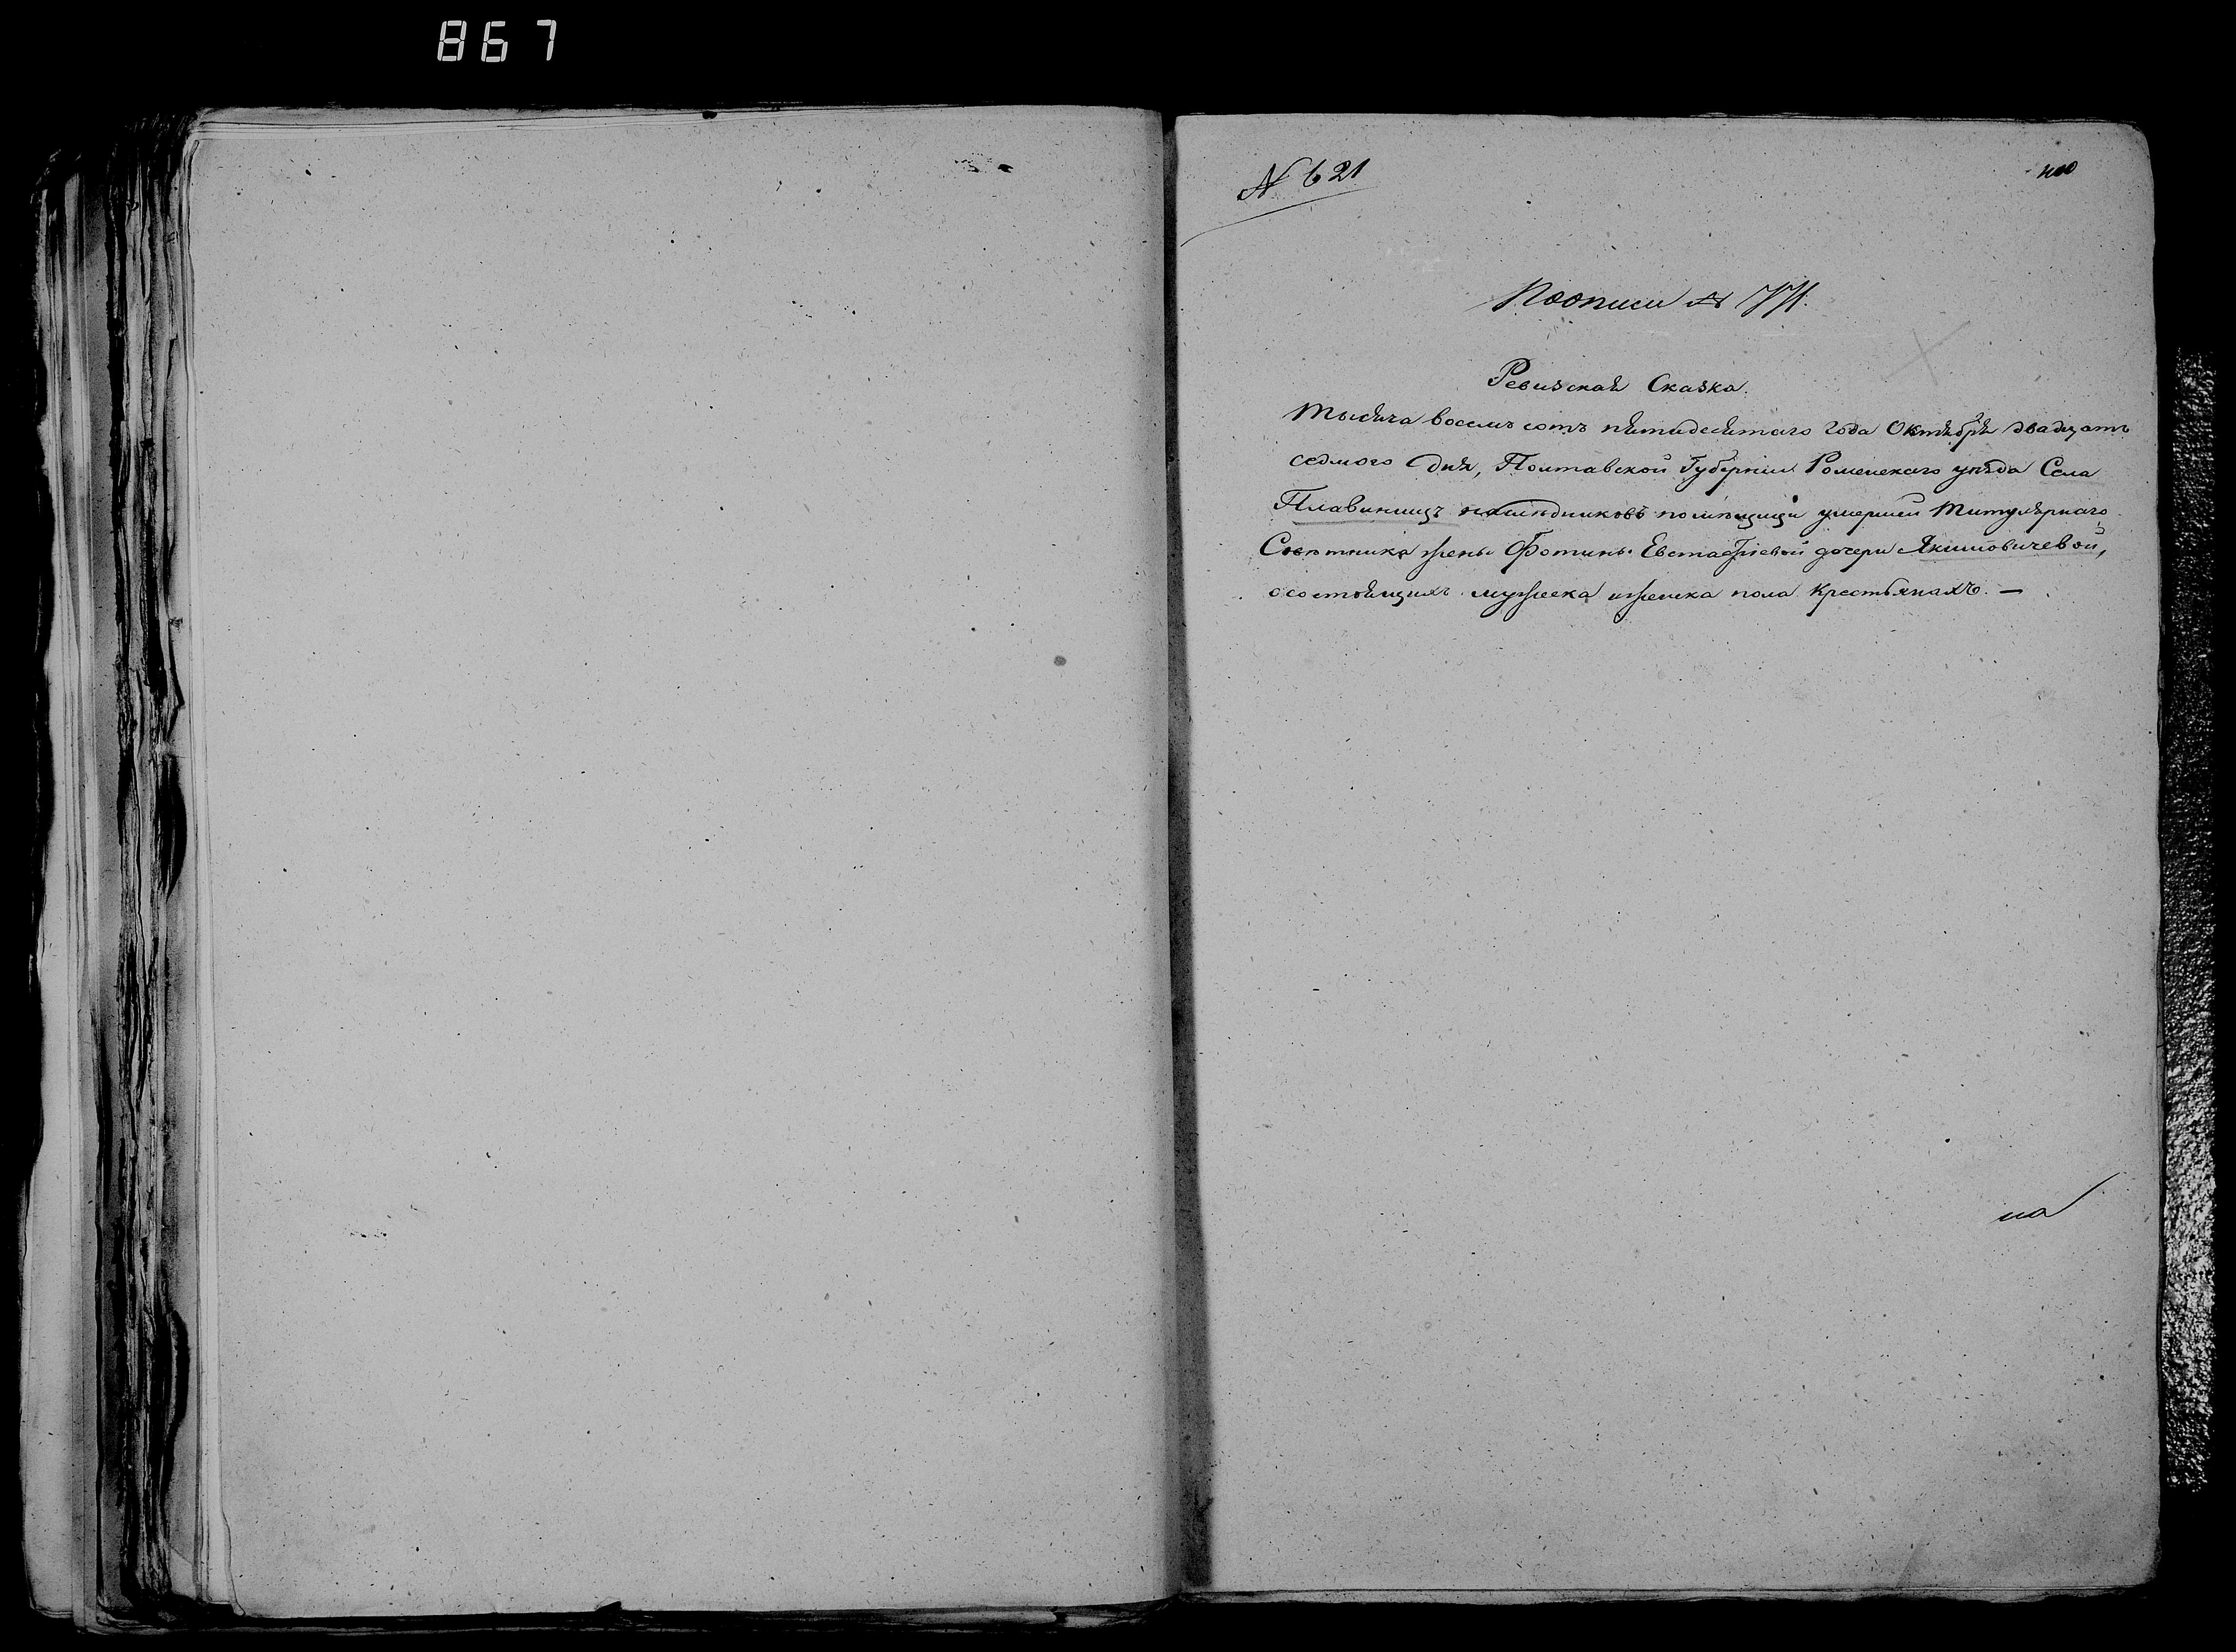 867
N 621
По описи N
Ревизская Сказка.
Тысяча восемь сотъ пятидесятаго года Октября двадцать
седмого дня, Полтавской Губерніи Роменскаго уѣзда Села
Плавинищъ наслѣдниковъ помѣщицы умершей Титулярнаго
Совѣтника жены Фотины Евстафіевой дочери Якимовичевой,
о состоящихъ мужеска и женска пола крестьянахъ. —